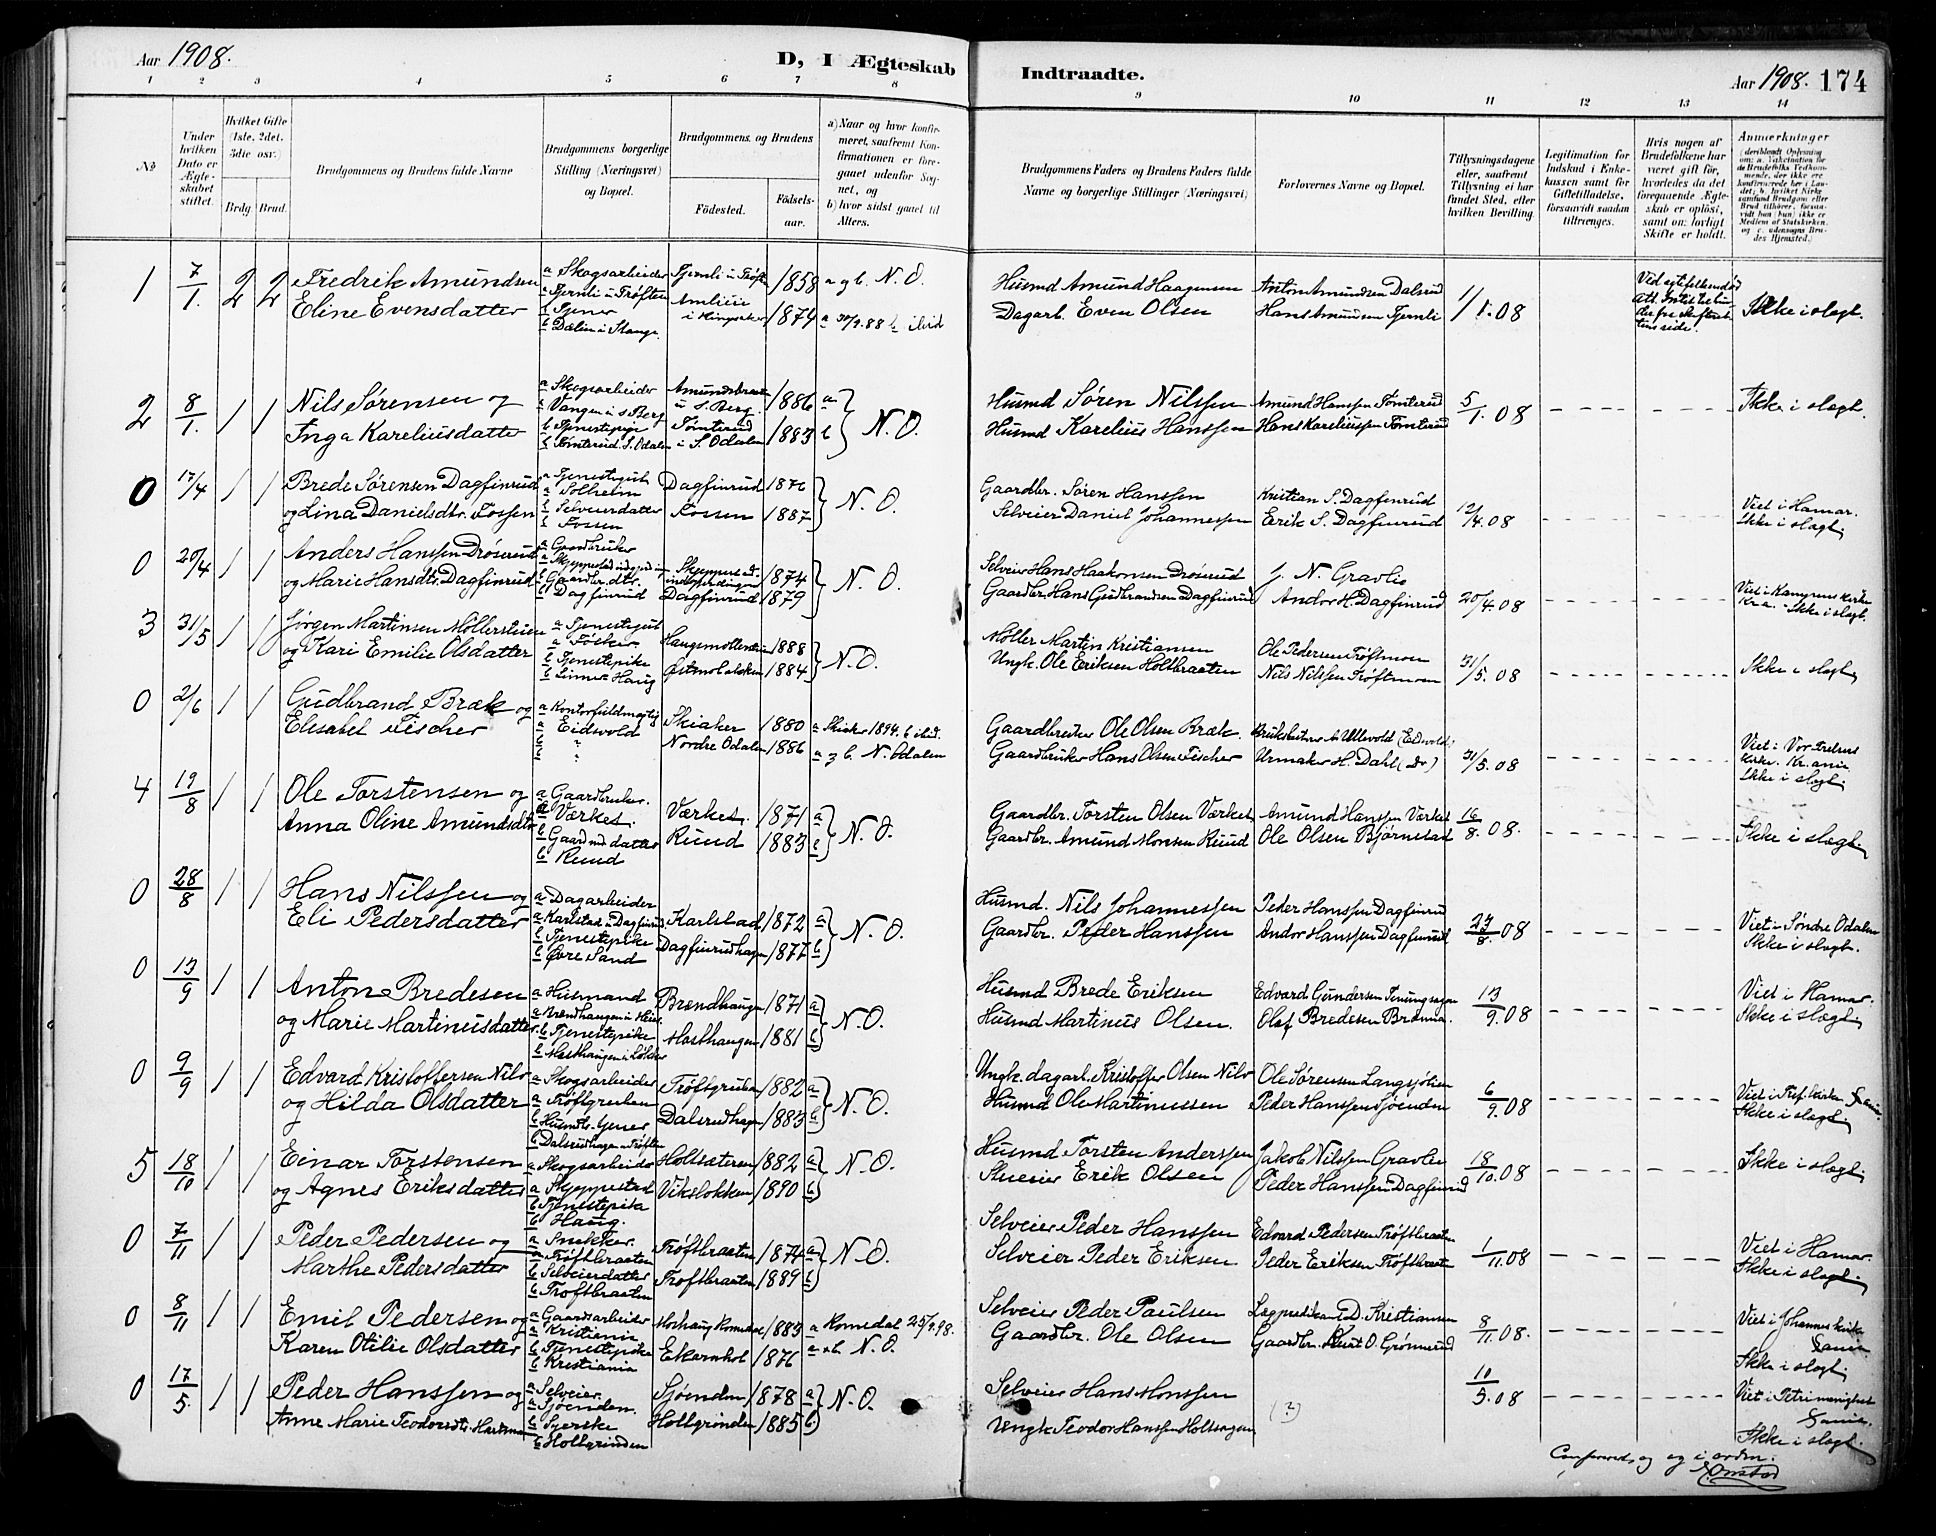 Aar 1908.
D, I Ægteskab
Indtraadte.
Aar 1908. 174
1 2 3 4 5 6 7 8 9 10 11 12 13 14
No
Under hvilken Dato er Ægteskabet stiftet.
Hvilket Gifte (1ste, 2det, 3die osv.)
Brdg. Brud.
Brudgommens og Brudens fulde Navne
Brudgommens borgerlige Stilling (Næringsvei) og Bopæl.
Brudgommens og Brudens
Fødested. Fødselsaar.
a) Naar og hvor konfirmeret, saafremt Konfirmationen er foregaaet udenfor Sognet, og
b) hvor sidst gaaet til Alters.
Brudgommens Faders og Brudens Faders fulde Navne og borgerlige Stillinger (Næringsvei)
Forlovernes Navne og Bopæl.
Tillysningsdagene eller, saafremt Tillysning ei har fundet Sted, efter hvilken Bevilling.
Legitimation for Indskud i Enkekassen samt for Giftetilladelse, forsaavidt saadan tiltrænges.
Hvis nogen af Brudefolkene har været gift før, hvorledes da det foregaaende Ægteskab er opløst, samt om lovligt Skifte er holdt.
Anmærkninger
1 7/1. 2 2 Fredrik Amundsen
Eline Evensdatter
a Skogsarbeider
a Tjernli u Trøften
b Tjener
b Dælin i Stange
Tjernli u Trøft 1858 a og b. N. O.
i Ringsaker 1874 a 30/9.88 b ibid
Husmd Amund Haagensen
Dagarb. Even Olsen
Anton Amundsen Dalsrud
Hans Amundsen Tjernli
1/1.08
Ikke i slegt.
2 8/1. 1 1 Nils Sørensen og
Inga Kareliusdatter
a Skogsarbeider
a Vangen i s Berg
b Tjenestepige
b Tomterud. S. Odalen
u S. Berg. 1886 a
Tomterud i S. Odalen 1883 b N. O.
Husmd Søren Nilssen
Husmd Karelius Hanssen
Amund Hanssen Tomterud
Hans Kareliussen Tomterud
5/1. 08
Ikke i slegt.
0 17/4 1 1 Brede Sørensen Dagfinrud
og Lina Danielsdtr. Fossen
a Tjenestegut
a Solheim
b Selveierdatter
b Fossen
Dagfinrud 1876
Fossen 1887 N. O.
Gaardbr. Søren Hanssen
Selveier Daniel Johannessen
Kristian S. Dagfinrud
Erik S. Dagfinrud
12/4.08
Viet i Hamar.
Ikke i slegt.
0 20/4 1 1 Anders Hanssen Drøserud
og Marie Hansdtr. Dagfinrud
a Gaardbruker
b Gaardbr. dtr.
b Dagfinrud
1874
Dagfinrud 1879 N. O.
Selveier Hans Haakonsen Drøserud
Gaardbr. Hans Gudbrandsen Dagfinrud
J. N. Gravlie
Andor H. Dagfinrud
20/4.08
Viet i Kampens kirke
Kr.a. Ikke i slegt.
3 31/5 1 1 Jørgen Martinsen Møllerstuen
og Kari Emilie Olsdatter
a Tjenestegut
b Tjenestepike
1888
1884 N. O.
Møller Martin Kristiansen
Ungk. Ole Eriksen Holtbraaten
Ole Pedersen Trøftmoen
Nils Nilssen Trøftmoen
31/5. 08
Ikke i slegt.
0 2/6 1 1 Gudbrand Bræk og
Elisabet Fischer
a Kontorfuldmægtig
a Eidsvold
Skiaker 1880
Nordre Odalen 1886
a Skiaker 1894. b ibid.
a og b. N. Odalen
Gaardbruker Ole Olsen Bræk.
Gaardbruker Hans Olsen Fischer
Bruksbestyrer A Ullevold (Eidsvold)
Urmaker H. Dahl (do)
31/5. 08
Viet i Vor Frelsers
kirke. Kr.ania.
Ikke i slegt.
4 19/8 1 1 Ole Torstensen og
Anna Oline Amundsdtr
a Gaardbruker.
a Værket.
b Gaardmd datter
b Ruud
Værket. 1871 a
Ruud 1883 b N. O.
Gaardbr. Torsten Olsen Værket
Gaardbr. Amund Monsen Ruud
Amund Hanssen Værket
Ole Olsen Bjørnstad
16/8. 08.
Ikke i slegt.
0 28/8 1 1 Hans Nilssen og
Eli Pedersdatter
a Dagarbeider
a Karlstad u Dagfinrud
b Tjenestepike
b Øvre Sand
Karlstad 1872 a
Dagfinrudhagen 1877 b N. O.
Husmd. Nils Johannessen
Gaardbr. Peder Hanssen
Peder Hanssen Dagfinrud
Andor Hanssen Dagfinrud
23/8. 08
Viet i Søndre Odalen
Ikke i slegt.
0 13/9 1 1 Anton Bredesen
og Marie Martinusdatter
a Husmand
b Tjenestepike
Brændhaugen 1871 a
Masthaugen 1881 b N. O.
Husmd Brede Eriksen
Husmd Martinus Olsen.
Edvard Gundersen
Olaf Bredesen
13/9. 08
Viet i Hamar.
Ikke i slegt.
0 9/9 1 1 Edvard Kristoffersen Nilo
og Hilda Olsdatter
a Skogsarbeider
a Trøftgruben
b Dalsrudhagen u Trøften
Trøftgruben 1882 a
Dalsrudhagen 1883 b N. O.
Ungk. dagarb. Kristoffer Olsen Nilo
Husmd Ole Martinussen
Ole Sørensen Langsjølien
Peder Hanssen Sjøenden
6/9. 08
Ikke i slegt.
5 18/10 1 1 Einar Torstensen
og Agnes Eriksdatter
a Skogsarbeider
a Skjeppestad
b Tjenestepike
b Haug.
Holtsæteren 1882 a
Vikslokken 1890 b N. O.
Husmd Torsten Anderssen
Selveier Erik Olsen
Jakob Nilssen Gravlie
Peder Hanssen Dagfinrud
18/10. 08
Ikke i slegt.
0 7/11 1 1 Peder Pedersen og
Marthe Pedersdatter
a Snekker.
a Trøftbraaten
b Selveierdatter
b Trøftbraaten
Trøftbraaten 1874 a
Trøftbraaten 1889 b N. O.
Selveier Peder Hanssen
Selveier Peder Eriksen
Edvard Pedersen Trøftbraaten
Peder Eriksen Trøftbraaten
1/11. 08
Viet i Hamar.
Ikke i slegt.
0 8/11 1 1 Emil Pedersen og
Karen Otilie Olsdatter
a Gaardsarbeider
a Kristiania
b Tjenestepike
b Kristiania
1883 a Romedal 25/9. 98.
Ekornhol 1876 a + b. N. O.
Selveier Peder Paulsen
Gaardbr. Ole Olsen
Lægpredikant D. Kristiansen
Gaardbr. Knut O. Grønnerud
8/11. 08.
Viet i Johannes kirke
Ikke i slegt.
0 17/5. 1 1 Peder Hanssen og
Anne Marie Teodorsdtr.
a Selveier.
a Sjøenden.
b Syerske
b Holtgrinden
Sjøenden 1878 a
Holtgrinden 1885 b N. O.
Selveier Hans Monssen
Ungk Teodor Hanssen Holtsagen
(?)
10/5. 08
Viet i Petri menighet
Ikke i slegt.
Confereret, og og i orden.